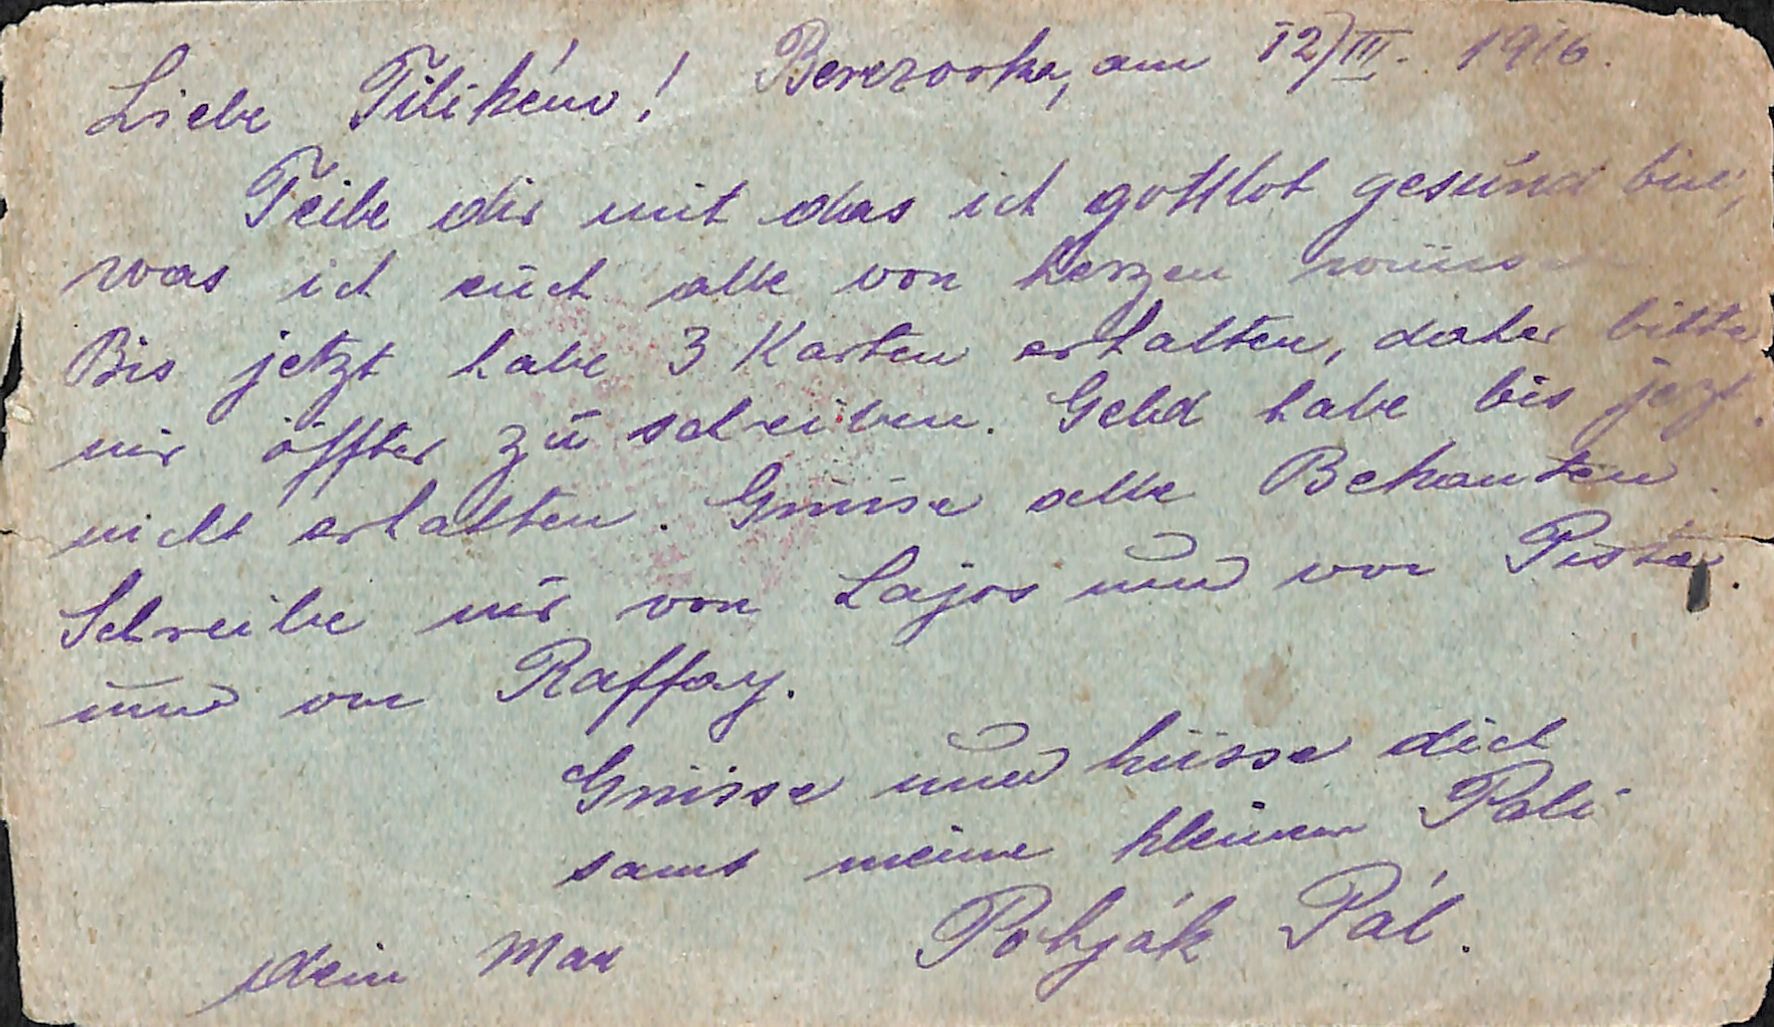 Liebe Tilikém! Berezovka, am 12/III. 1916.
Teile dir mit das ich gottlob gesund bin,
was ich euch alle von herzen wünsche
Bis jetzt habe 3 Karten erhalten, daher bitte
mir öffter zu schreiben. Geld habe bis jezt
nicht erhalten. Grüsse alle Bekanten.
Schreibe mir von Lajos und von Pista.
und von Raffay.
Grüsse und küsse dich
samt meine kleinen Pali
dein Man Pohják Pál.